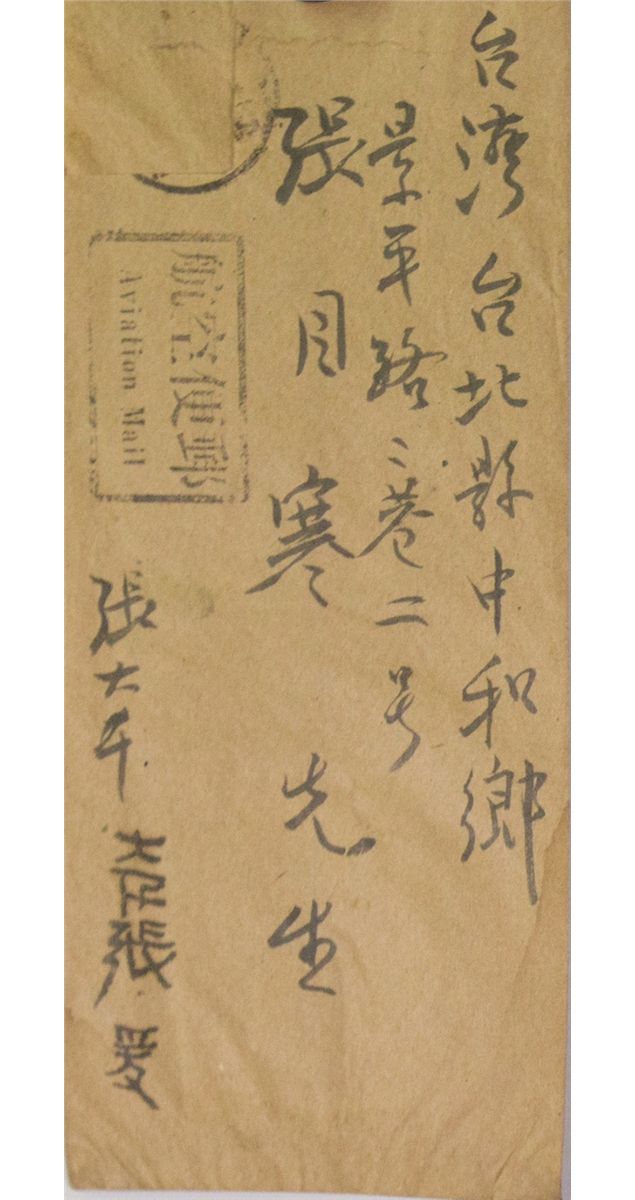 台灣台北縣中和鄉
景平路二巷二号
張目寒先生
航空便郵
Aviation Mail
張大千